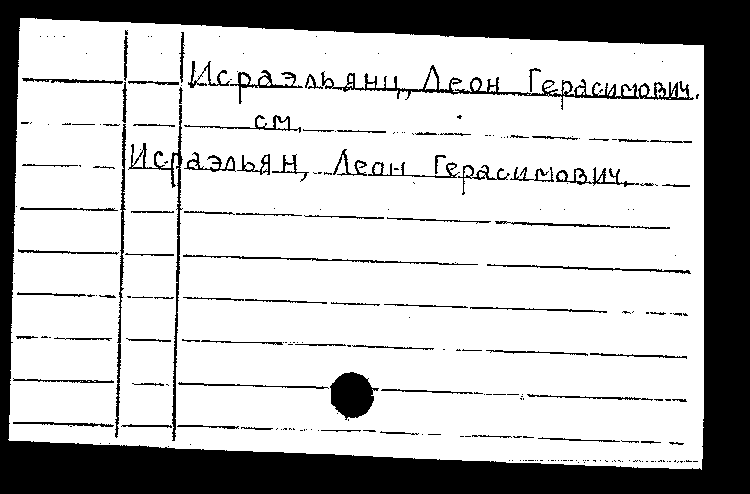 Исраэльянц, Леон Герасимович.
см.
Исраэльян, Леон Герасимович.